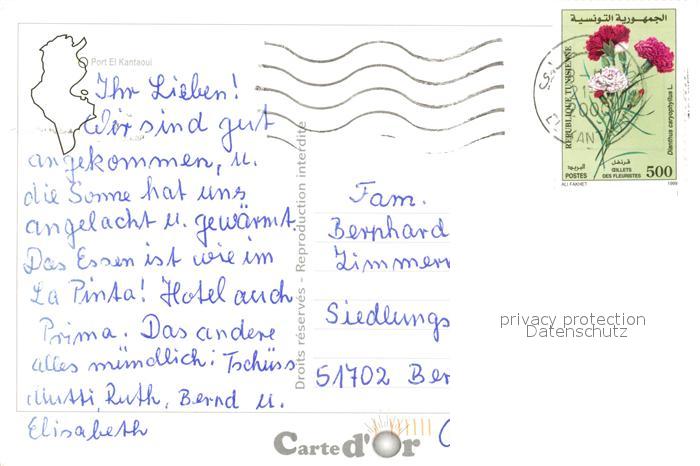 Port El Kantaoui
Ihr Lieben!
Wir sind gut
angekommen, u.
die Sonne hat uns
angelacht u. gewärmt.
Das Essen ist wie im
La Pinta! Hotel auch
Prima. Das andere
alles mündlich: Tschüss
Mutti, Ruth, Bernd u.
Elisabeth
Droits réservés - Reproduction interdite
Carte d'Or
Fam.
Bernhard
Zimmer
Siedlungs
51702 Ber
الجمهورية التونسية
REPUBLIQUE TUNISIENNE
Dianthus caryophyllus L.
قرنفل
البريد
POSTES
ŒILLETS
DES FLEURISTES
500
ALI FAKHET
1999
privacy protection
Datenschutz